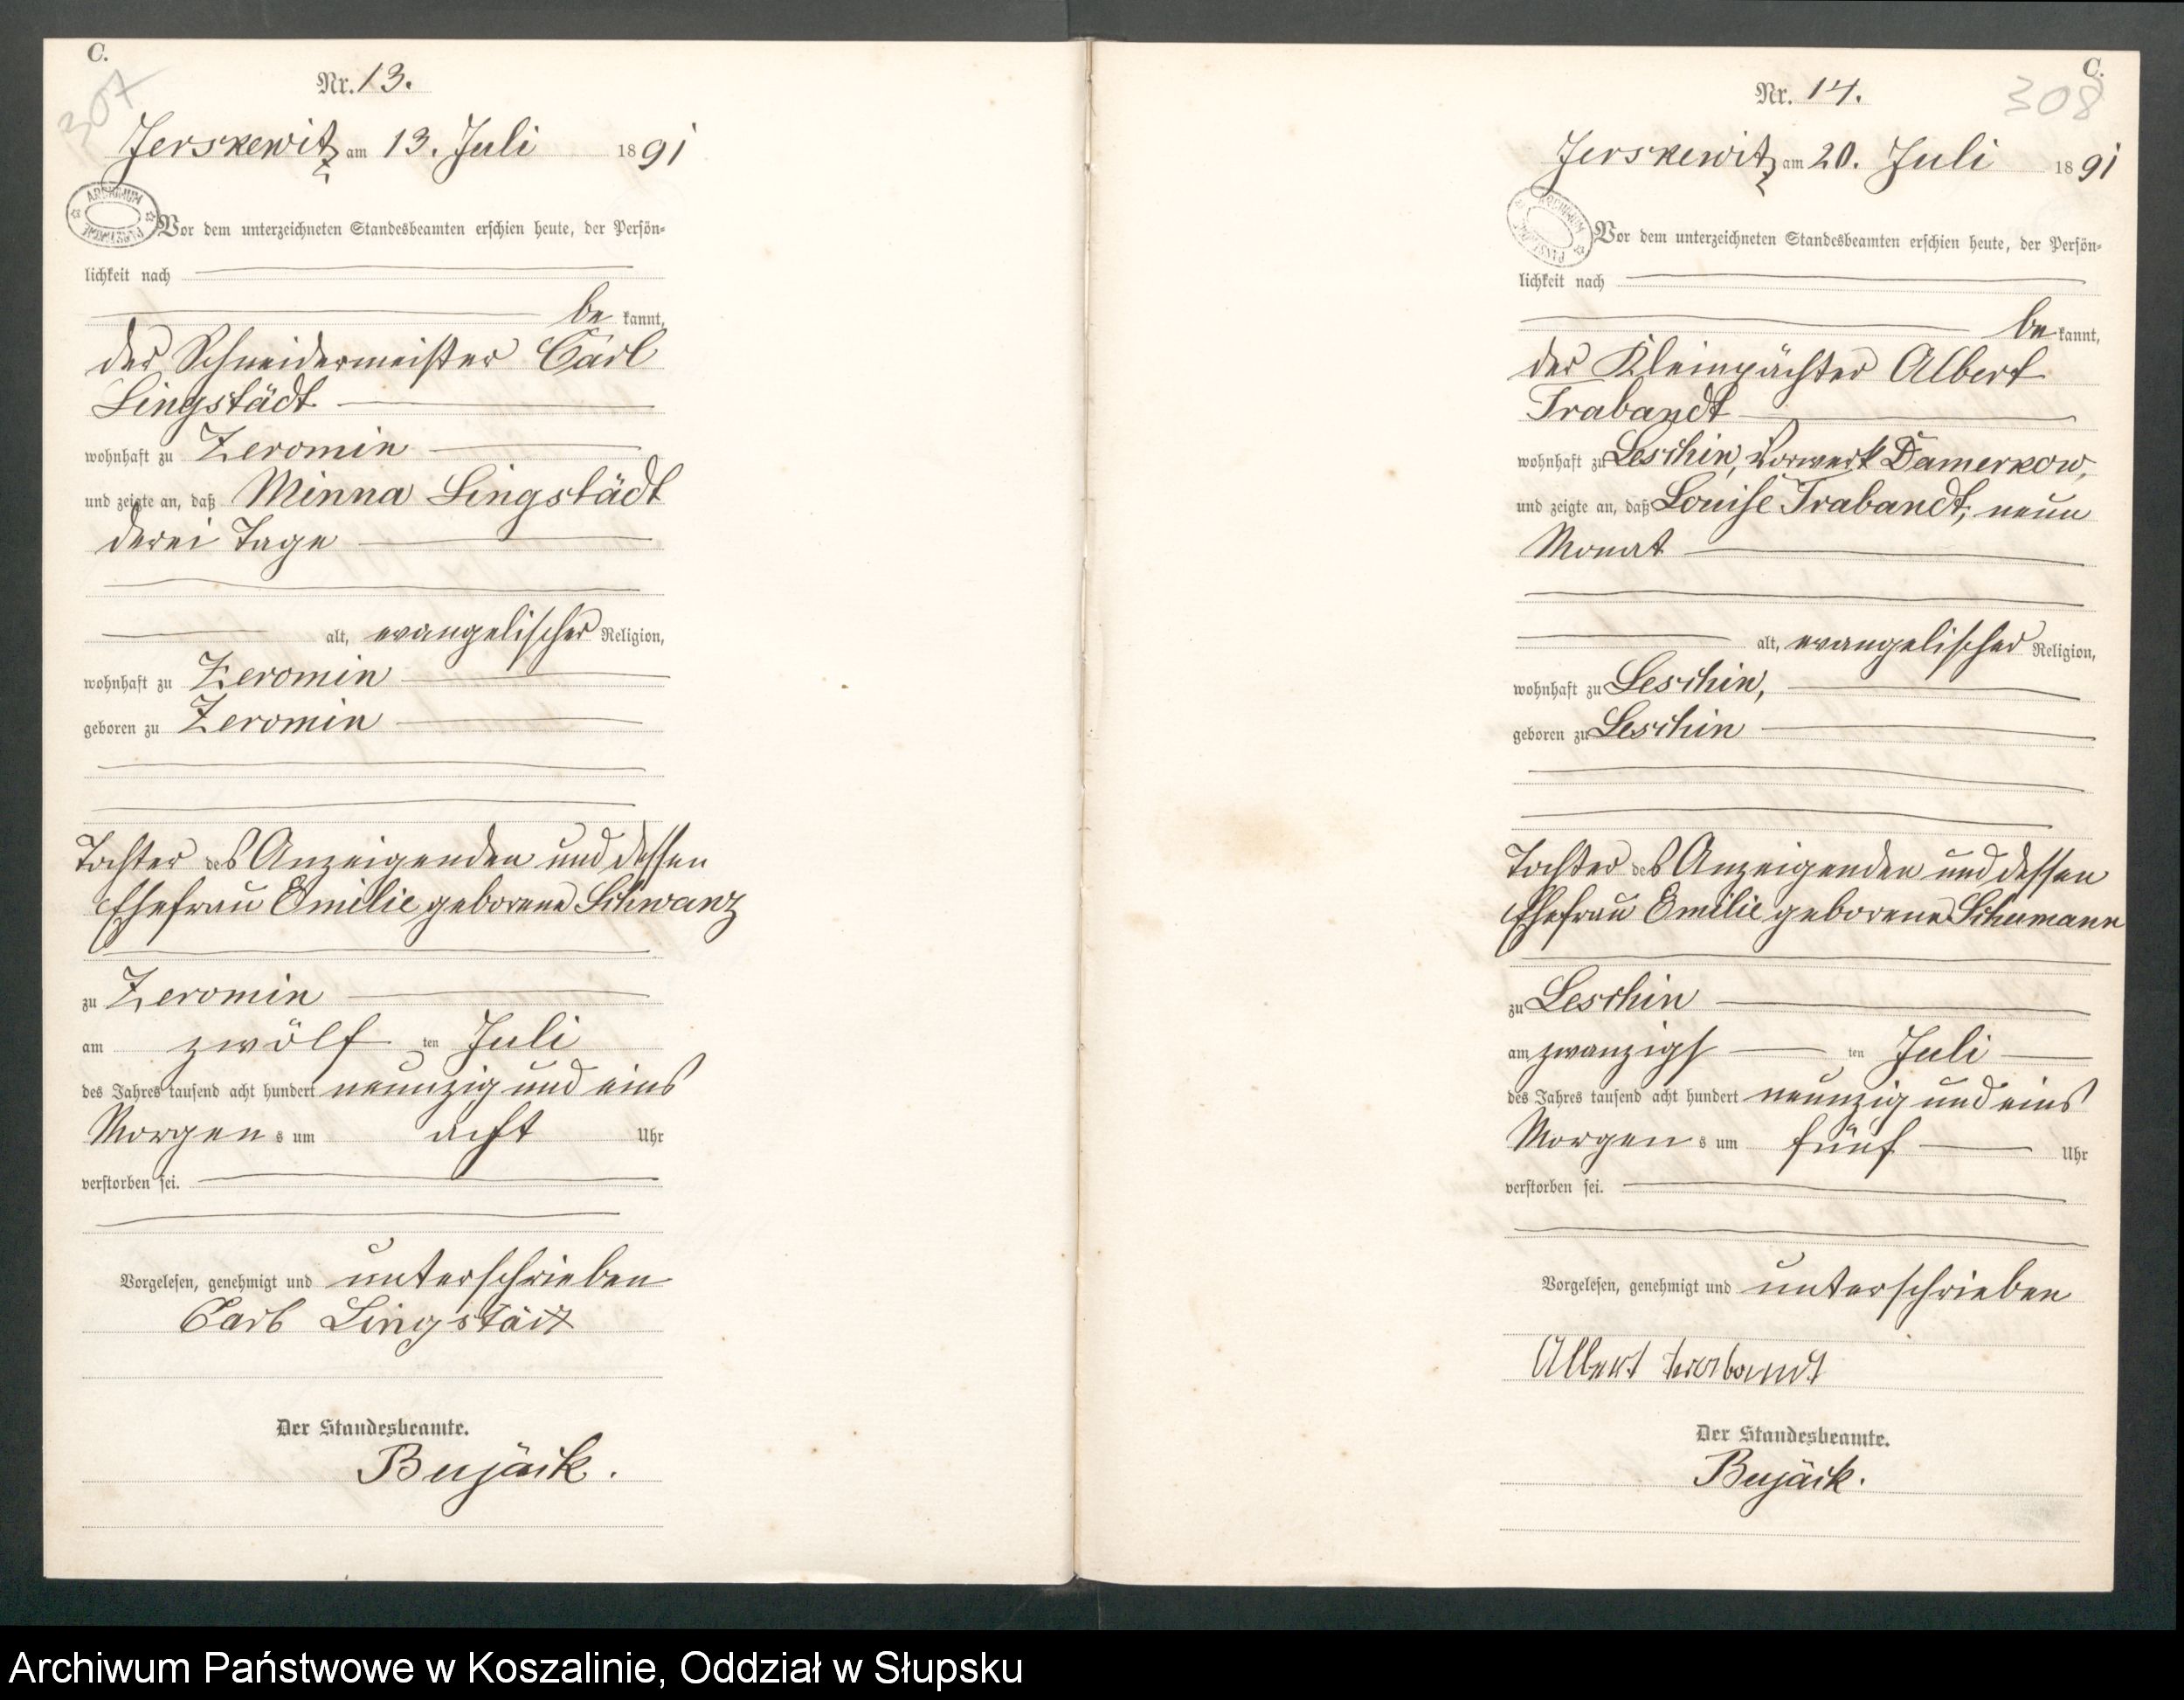 C.
307
Nr. 13.
Jerskewitz am 13. Juli 1891
ARCHIWUM PAŃSTWOWE
Vor dem unterzeichneten Standesbeamten erschien heute, der Persön-
lichkeit nach
be kannt,
der Schneidermeister Carl
Lingstädt
wohnhaft zu Zeromin
und zeigte an, daß Minna Lingstädt
drei Tage
alt, evangelischer Religion,
wohnhaft zu Zeromin
geboren zu Zeromin
Tochter des Anzeigenden und dessen
Ehefrau Emilie geborene Schwanz
zu Zeromin
am zwölf ten Juli
des Jahres tausend acht hundert neunzig und eins
Morgen s um acht Uhr
verstorben sei.
Vorgelesen, genehmigt und unterschrieben
Carl Lingstädt
Der Standesbeamte.
Bujäck.
C.
308
Nr. 14.
Jerskewitz am 20. Juli 1891
ARCHIWUM PAŃSTWOWE
Vor dem unterzeichneten Standesbeamten erschien heute, der Persön-
lichkeit nach
be kannt,
der Kleinpächter Albert
Trabandt
wohnhaft zu Leschin, Vorwerk Damerkow,
und zeigte an, daß Louise Trabandt, neun
Monat
alt, evangelischer Religion,
wohnhaft zu Leschin,
geboren zu Leschin
Tochter des Anzeigenden und dessen
Ehefrau Emilie geborene Schumann
zu Leschin
am zwanzigs ten Juli
des Jahres tausend acht hundert neunzig und eins
Morgen s um fünf Uhr
verstorben sei.
Vorgelesen, genehmigt und unterschrieben
Albert Trabandt
Der Standesbeamte.
Bujäck.
Archiwum Państwowe w Koszalinie, Oddział w Słupsku